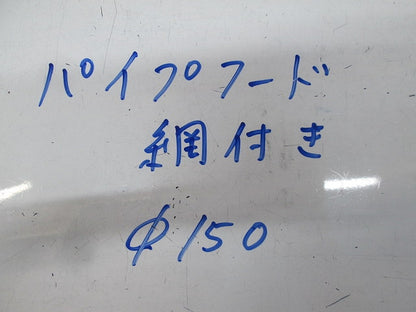 パイプフード
網付き
φ150